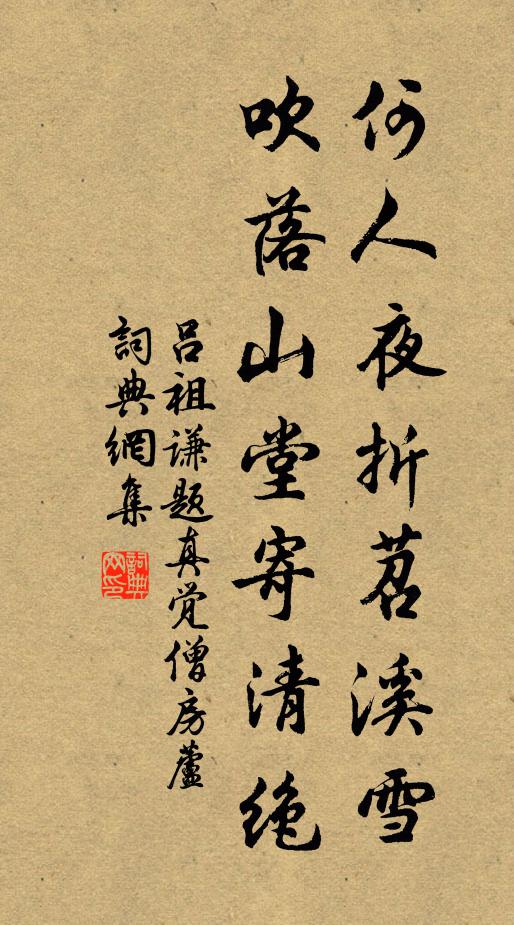 何人夜折苕溪雪
吹落山堂寄清绝
吕祖谦题真觉僧房蘆
詞典網集
詞典网印